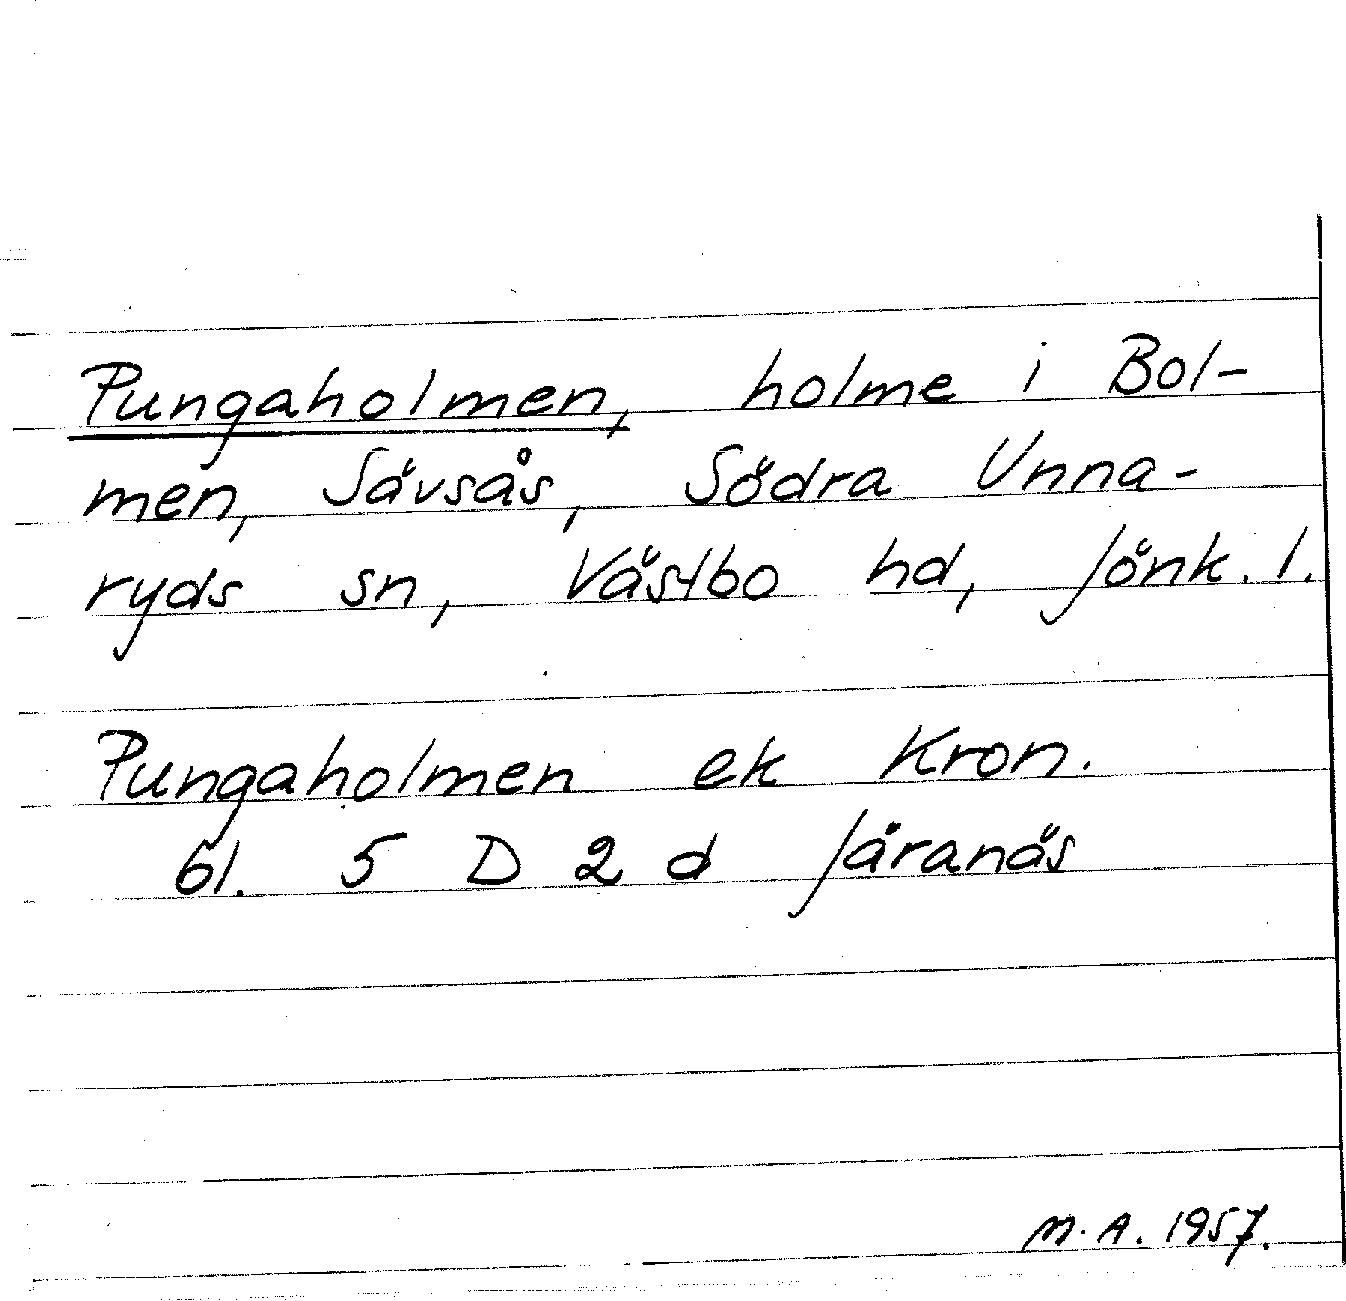 Pungaholmen, holme i Bol-
men, Sävsås, Södra Unna-
ryds sn, Västbo hd, Jönk. l.
Pungaholmen ek Kron.
bl. 5 D 2 d Järanäs
M. A. 1957.